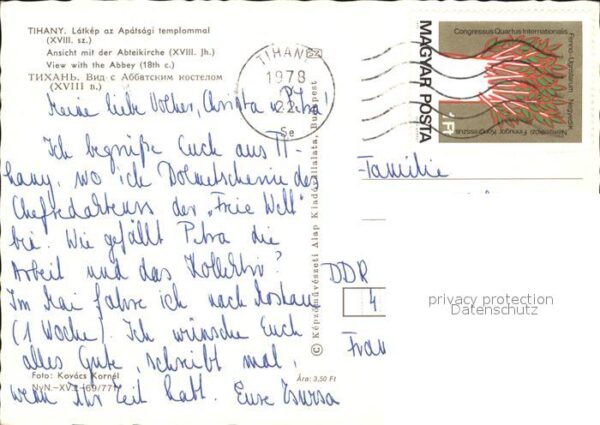 TIHANY. Látkép az Apátsági templommal
(XVIII. sz.)
Ansicht mit der Abteikirche (XVIII. Jh.)
View with the Abbey (18th c.)
ТИХАНЬ. Вид с Аббатским костелом
(XVIII в.)
TIHANY
1978
Se
Congressus Quartus Internationalis
Fenno-Ugristarum
Nemzetközi Finnugor Kongresszus
MAGYAR POSTA
1 Ft
Meine liebe Volker, Christa u. Petra!
Ich begrüße Euch aus Ti-
hany, wo ich Dolmetscherin des
Chefredakteurs der „Freie Welt"
bin. Wie gefällt Petra die
Arbeit und das Kollektiv?
Im Mai fahre ich nach Rostau
(1 Woche). Ich wünsche Euch
alles Gute, schreibt mal,
wenn Ihr Zeit habt. Eure Zsuzsa
Familie
DDR
4
Frau
© Képzőművészeti Alap Kiadóvállalata, Budapest
Foto: Kovács Kornél
Ára: 3,50 Ft
privacy protection
Datenschutz